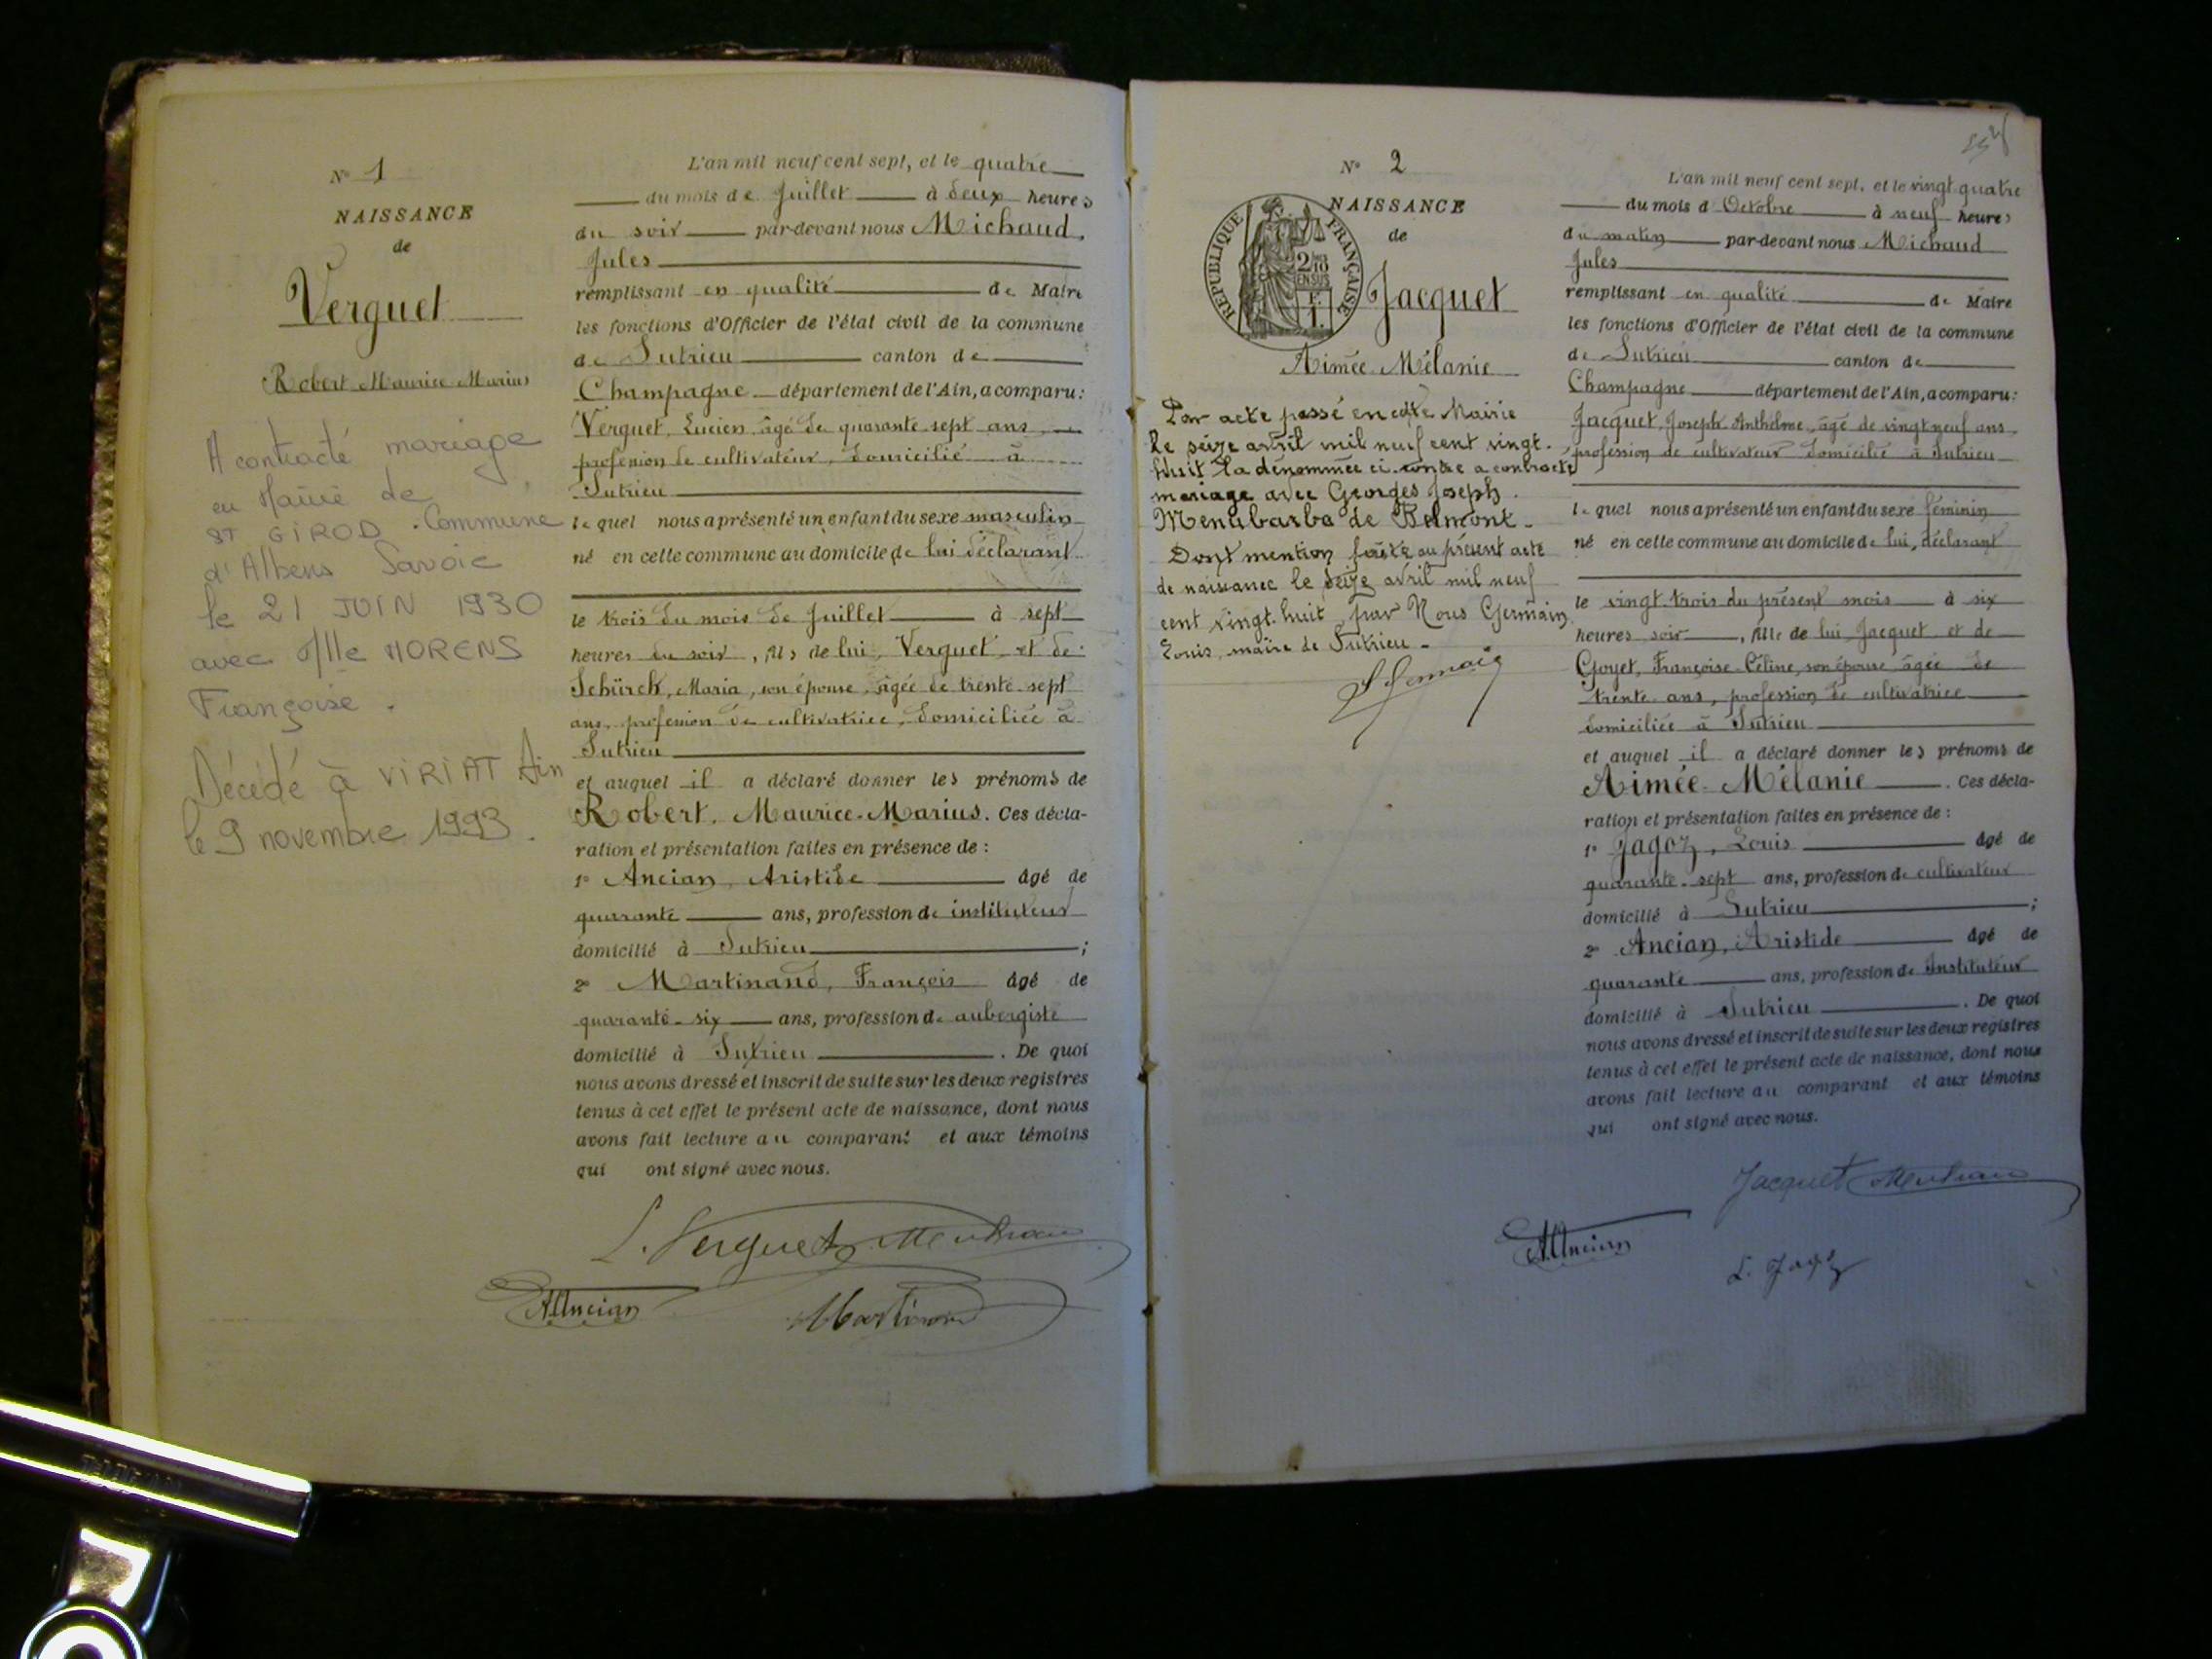 N° 1
NAISSANCE
de
Verguet
Robert Maurice Marius
A contracté mariage
en Mairie de
ST GIROD . Commune
d'Albens Savoie
le 21 JUIN 1930
avec Mlle MORENS
Françoise .
Décédé à VIRIAT Ain
le 9 novembre 1993 .
L'an mil neuf cent sept, et le quatre
du mois de Juillet à deux heures
du soir par-devant nous Michaud,
Jules
remplissant en qualité de Maire
les fonctions d'Officier de l'état civil de la commune
de Sutrieu canton de
Champagne département de l'Ain, a comparu :
Verguet, Lucien âgé de quarante sept ans,
profession de cultivateur, domicilié à
Sutrieu
lequel nous a présenté un enfant du sexe masculin
né en cette commune au domicile de lui déclarant
le trois du mois de Juillet à sept
heures du soir, fils de lui, Verguet et de
Schürch, Maria, son épouse, âgée de trente-sept
ans, profession de cultivatrice, domiciliée à
Sutrieu
et auquel il a déclaré donner les prénoms de
Robert, Maurice-Marius. Ces décla-
ration et présentation faites en présence de :
1° Ancian, Aristide âgé de
quarante ans, profession de instituteur
domicilié à Sutrieu ;
2° Martinand, François âgé de
quarante-six ans, profession de aubergiste
domicilié à Sutrieu . De quoi
nous avons dressé et inscrit de suite sur les deux registres
tenus à cet effet le présent acte de naissance, dont nous
avons fait lecture au comparant et aux témoins
qui ont signé avec nous.
L. Verguet
AAncian Martinand
N° 2
NAISSANCE
de
REPUBLIQUE FRANÇAISE
2/10 EN SUS
Jacquet
Aimée-Mélanie
Par acte passé en cette Mairie
le seize avril mil neuf cent vingt-
huit la dénommée ci-contre a contracté
mariage avec Georges Joseph
Menabarba de Belmont -
Dont mention faite au présent acte
de naissance le seize avril mil neuf
cent vingt-huit par Nous Germain
Louis, maire de Sutrieu -
L Germain
L'an mil neuf cent sept, et le vingt quatre
du mois d'Octobre à neuf heures
du matin par-devant nous Michaud
Jules
remplissant en qualité de Maire
les fonctions d'Officier de l'état civil de la commune
de Sutrieu canton de
Champagne département de l'Ain, a comparu :
Jacquet, Joseph Anthelme, âgé de vingt neuf ans,
profession de cultivateur domicilié à Sutrieu
lequel nous a présenté un enfant du sexe féminin
né en cette commune au domicile de lui, déclarant
le vingt-trois du présent mois à six
heures soir, fille de lui, Jacquet et de
Goyet, Françoise-Céline, son épouse âgée de
trente ans, profession de cultivatrice
domiciliée à Sutrieu
et auquel il a déclaré donner les prénoms de
Aimée-Mélanie . Ces décla-
ration et présentation faites en présence de :
1° Jagoz, Louis âgé de
quarante-sept ans, profession de cultivateur
domicilié à Sutrieu ;
2° Ancian, Aristide âgé de
quarante ans, profession de Instituteur
domicilié à Sutrieu . De quoi
nous avons dressé et inscrit de suite sur les deux registres
tenus à cet effet le présent acte de naissance, dont nous
avons fait lecture au comparant et aux témoins
qui ont signé avec nous.
Jacquet
AAncian
L. Jagoz